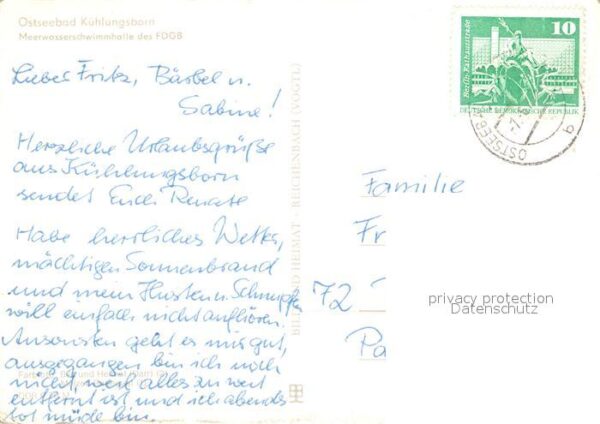 Ostseebad Kühlungsborn
Meerwasserschwimmhalle des FDGB
Lieber Fritz, Bärbel u.
Sabine!
Herzliche Urlaubsgrüße
aus Kühlungsborn
sendet Euch Renate
Habe herrliches Wetter,
mächtigen Sonnenbrand
und mein Husten u. Schnupfen
will einfach nicht aufhören.
Ansonsten geht es mir gut,
ausgegangen bin ich noch
nicht, weil alles zu weit
entfernt ist und ich abends
tot müde bin.
BILD UND HEIMAT · REICHENBACH (VOGTL)
10
Berlin, Rathausstraße
DEUTSCHE DEMOKRATISCHE REPUBLIK
OSTSEEB
Familie
Fr
72
Pa
privacy protection
Datenschutz